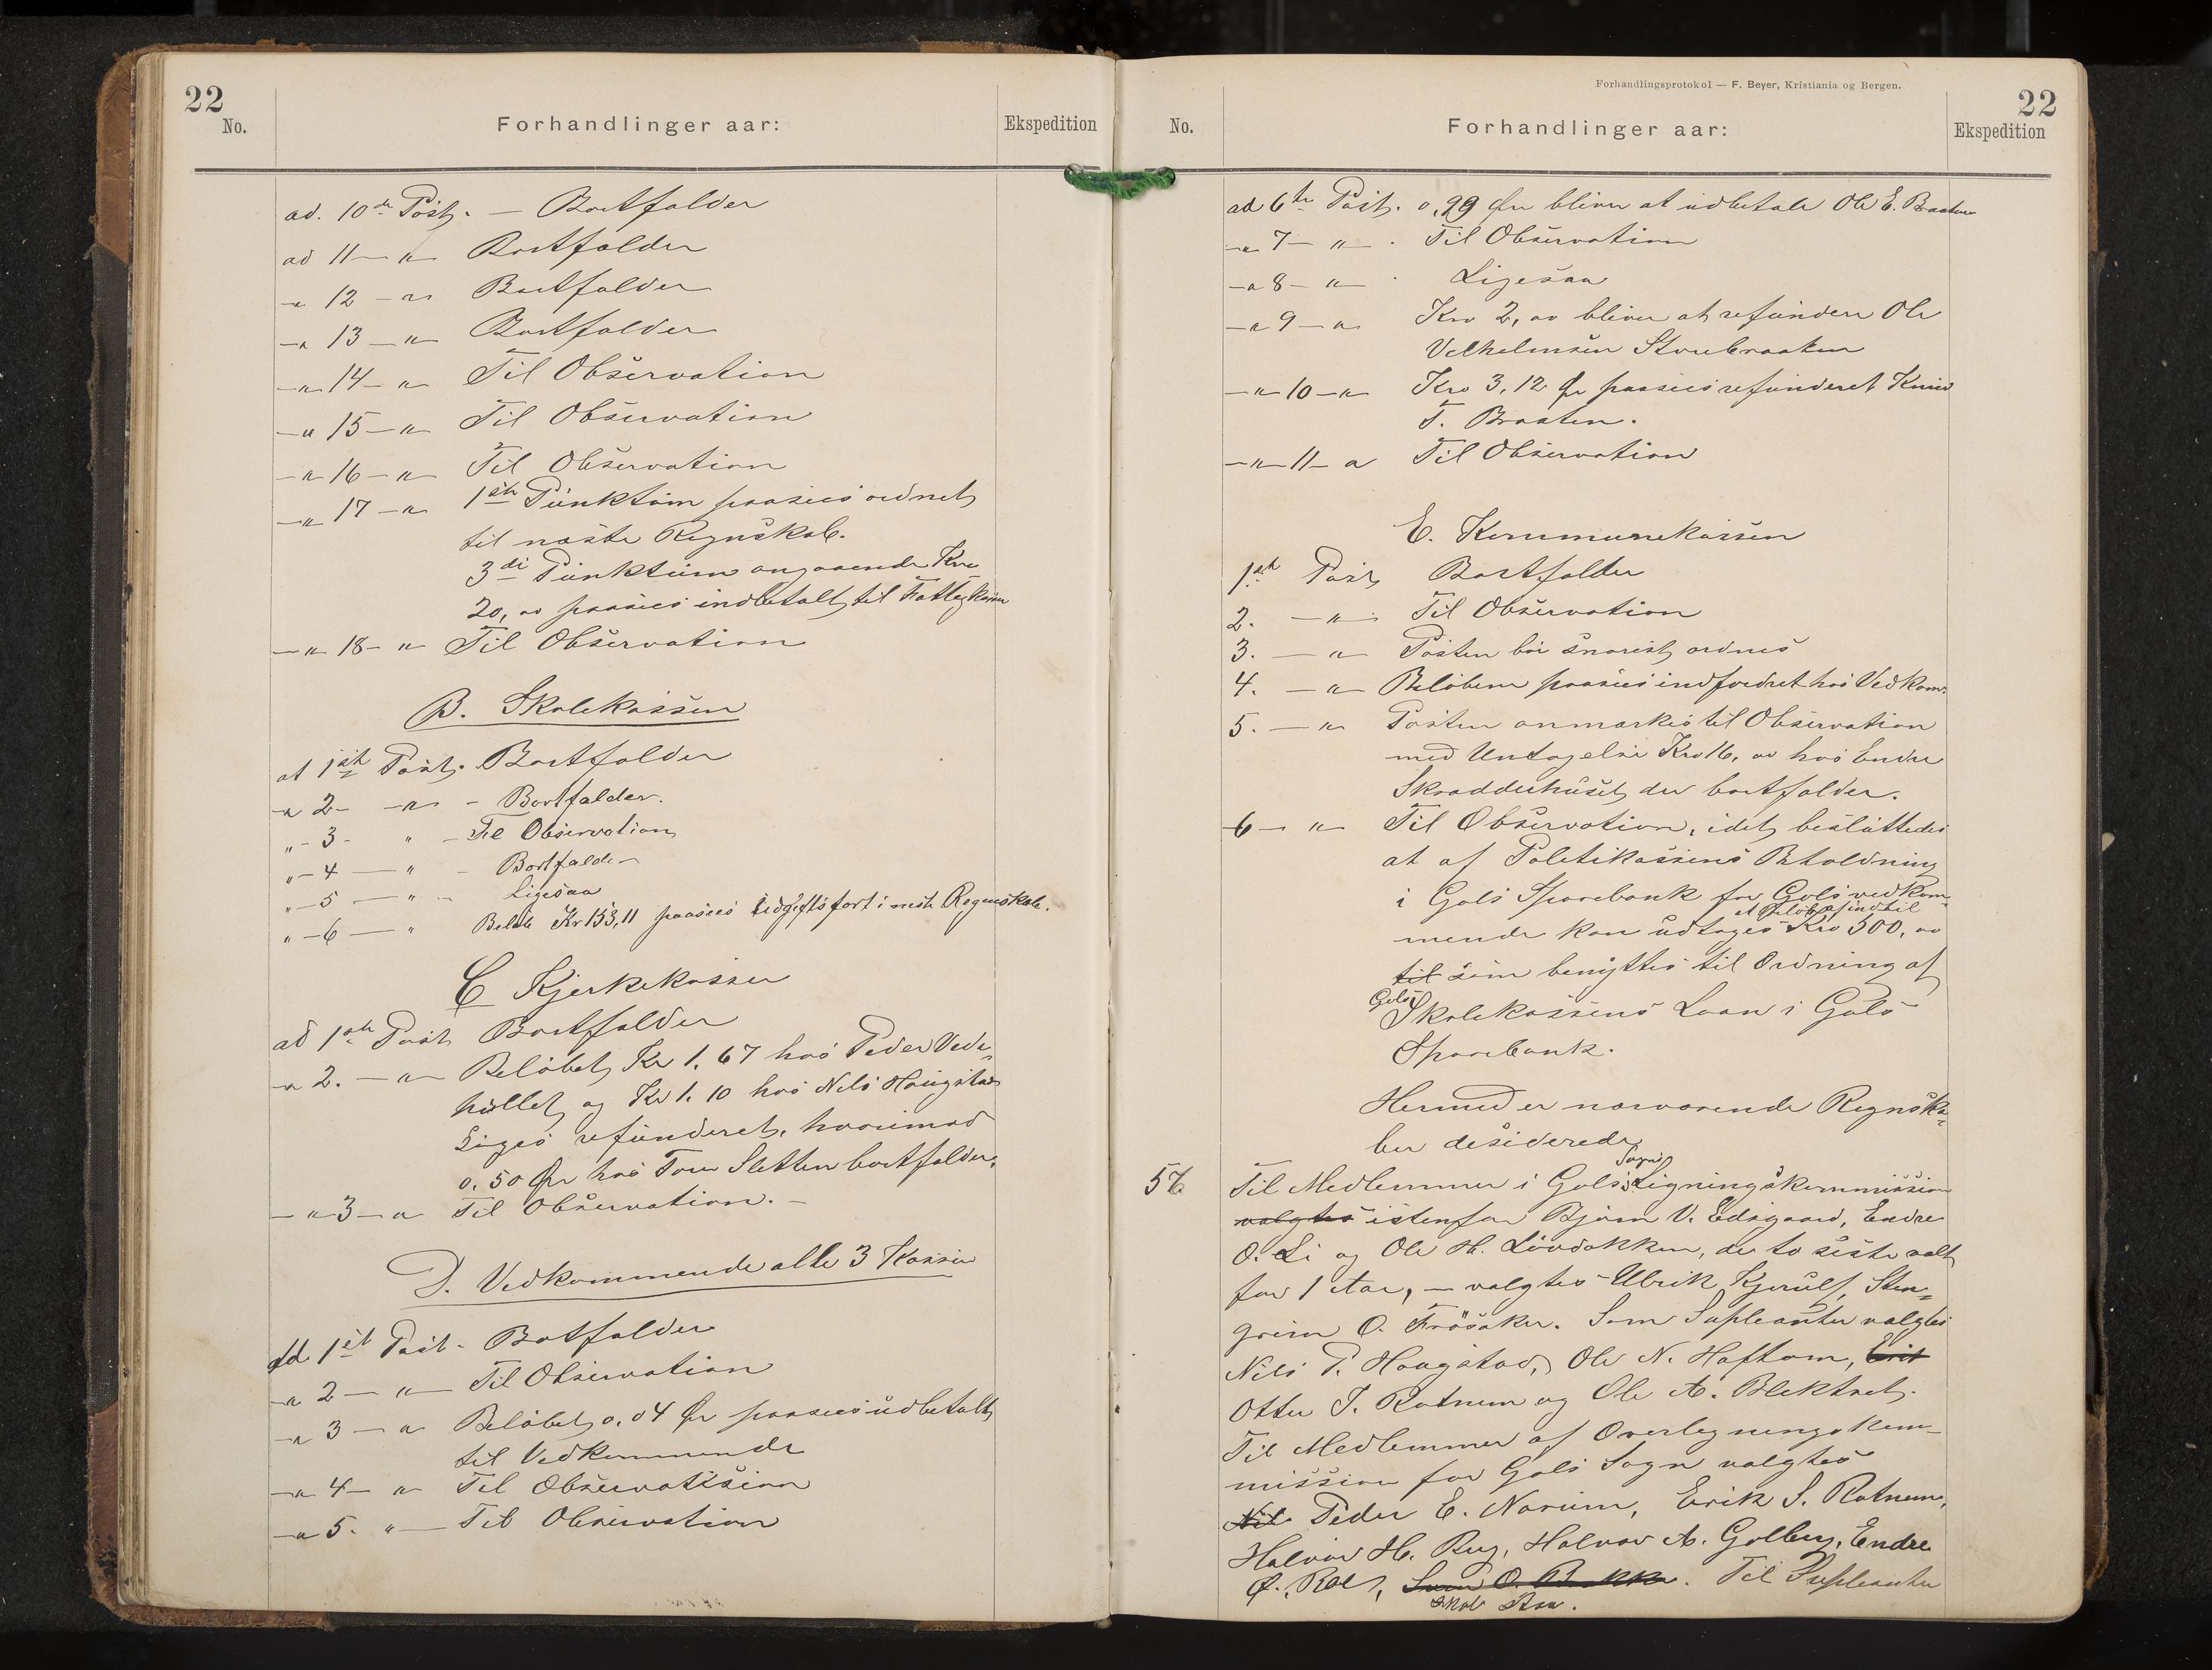 22
No.
Forhandlinger aar:
Ekspedition
ad. 10de Post. — Bortfalder
ad 11 — " — Bortfalder
— " 12 — " Bortfalder
— " 13 — " Bortfalder
— " 14 — " Til Observation
— " 15 — " Til Observation
— " 16 — " Til Observation
— " 17 — " 1ste Punktum paasees ordnet
til næste Regnskab.
3di Punktum angaaende Kr
20,00 paasees indbetalt til Fattigkassen
— " 18 — " Til Observation
B. Skolekassen
at 1ste Post. Bortfalder
— " 2 — " — Bortfalder.
" — 3 — " — Til Observation
" — 4 — " — Bortfalder
" — 5 — " — Ligesaa
" — 6 — " Beløb Kr 153,11 paasees udgiftsført i neste Regnskab.
C Kjerkekassen
ad 1ste Post Bortfalder
— " 2. — " — Beløbet Kr 1.67 hos Peder Vede-
hullet og Kr 1.10 hos Nils Haugstad
Siges refunderet, hvorimod
0.50 Ør hos Tom Sletten bortfalder.
— " 3 — " Til Observation. —
D. Vedkommende alle 3 Kasser
ad. 1ste Post — Bortfalder
— " 2 — " — Til Observation
— " 3 — " Beløbet 0.04 Ør paasees udbetalt
til Vedkommende
— " 4 — " Til Observatision
— " 5. " — Til Observation
Forhandlingsprotokol — F. Beyer, Kristiania og Bergen.
22
No.
Forhandlinger aar:
Ekspedition
ad 6te Post. 0,99 Ør bliver at udbetale Ole E. Braaten
— " 7 — " — . Til Observation
— " 8 — " — . Ligesaa
— " 9 — " Kr 2,00 bliver at refundere Ole
Velhelmsen Storebraaten
— " 10 — " Kr 3,12 Ør paasees refunderet Knud
T. Braaten.
— " 11 — " Til Observation
E. Kommunekassen
1ste Post Bortfalder
2. — " — Til Observation
3. — " Posten bør snarest ordnes
4. — " — Beløbene paasees indfordret hos Vedkom.
5. — " Posten anmærkes til Observation
med Undtagelse Kr 16,00 hos Endre
Skradderhuset der bortfalder.
— 6 — " — Til Observation, idet besluttedes
at af Politikassens Beholdning
i Gols Sparebank for Gols vedkom-
mende kan udtages et Beløb af indtil Kr 500,00
til som benyttes til Ordning af
Gols Skolekassens Laan i Gols
Sparebank.
Hermed er nærværende Regnska-
ber desiderede
57. Til Medlemmer i Gols Sogns Ligningskommission
valgtes istenfor Bjørn V. Eidsgaard, Endre
O. Li og Ole H. Løvdokken, de to siste valt
for 1 Aar, — valgtes Ulrik Kjerulf, Sten-
grim O. Frøsaker. Som Supleanter valgtes
Nils P. Haugstad, Ole N. Haftom, Erik
Otter T. Rotnem og Ole A. Blektvet.
Til Medlemmer af Overligningskom-
mission for Gols Sogn valgtes
Nil Peder E. Norum, Erik S. Rotnem,
Halvor H. Rug, Halvor A. Golberg, Endre
O. Rol, Sven O. Bakke. Til Supleanter